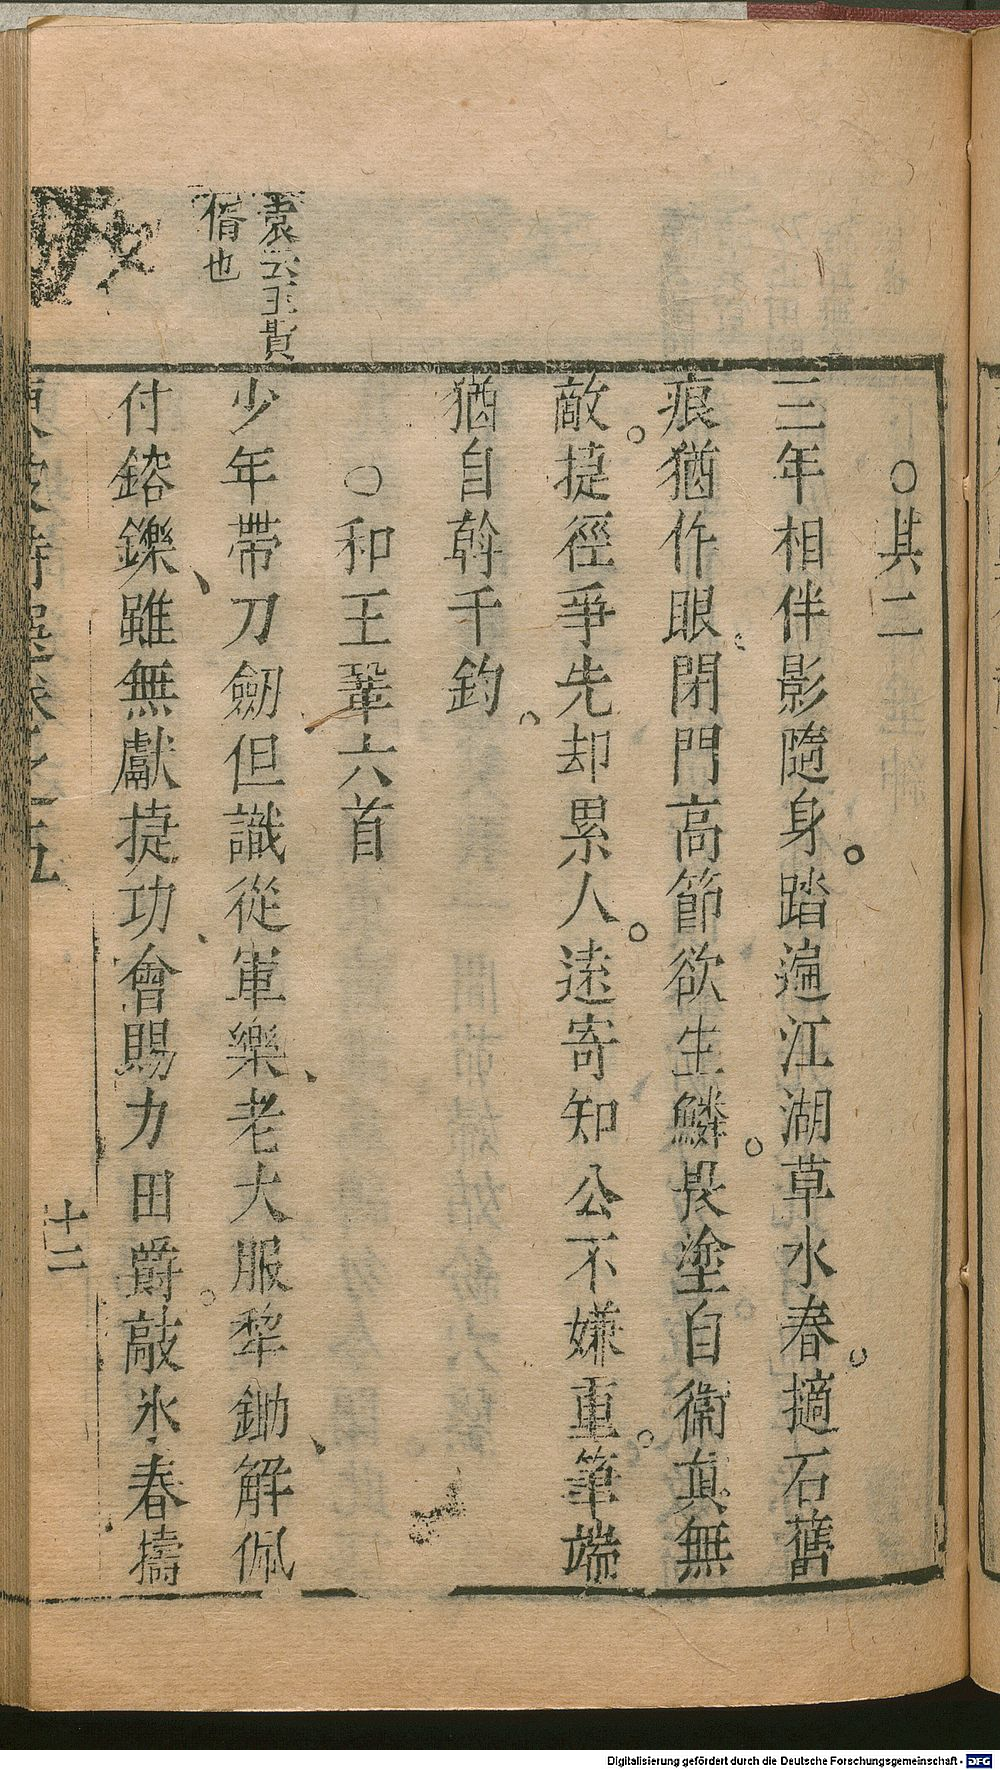 ○其二
三年相伴影隨身踏遍江湖草水春擿石舊
痕猶作眼閉門高節欲生鱗畏塗自衞真無
敵捷徑爭先却累人遠寄知公不嫌重筆端
猶自斡千鈞
○和王鞏六首
少年帶刀劒但識從軍樂老大服犂鋤解佩
付鎔鑠雖無獻捷功會賜力田爵敲氷春擣
袁云玉貲
偦也
東坡詩選卷之五
十二
Digitalisierung gefördert durch die Deutsche Forschungsgemeinschaft - DFG